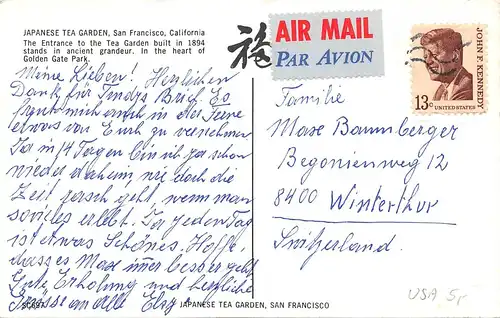 JAPANESE TEA GARDEN, San Francisco, California
The Entrance to the Tea Garden built in 1894
stands in ancient grandeur. In the heart of
Golden Gate Park.
福
AIR MAIL
PAR AVION
JOHN F. KENNEDY
13c
UNITED STATES
Meine Lieben! Herzlichen
Dank für Brief. Es
freut mich auch in der Ferne
etwas von Euch zu vernehmen
Ja in 14 Tagen bin ich ja schon
wieder daheim, wie doch die
Zeit rasch geht, wenn man
sovieles erlebt. Ja jeden Tag
ist etwas Schönes. Hoffe,
dass es Max immer besser geht
Gute Erholung und herzliche
Grüsse an alle
Familie
Max Baumberger
Begonienweg 12
8400 Winterthur
Switzerland
JAPANESE TEA GARDEN, SAN FRANCISCO
USA